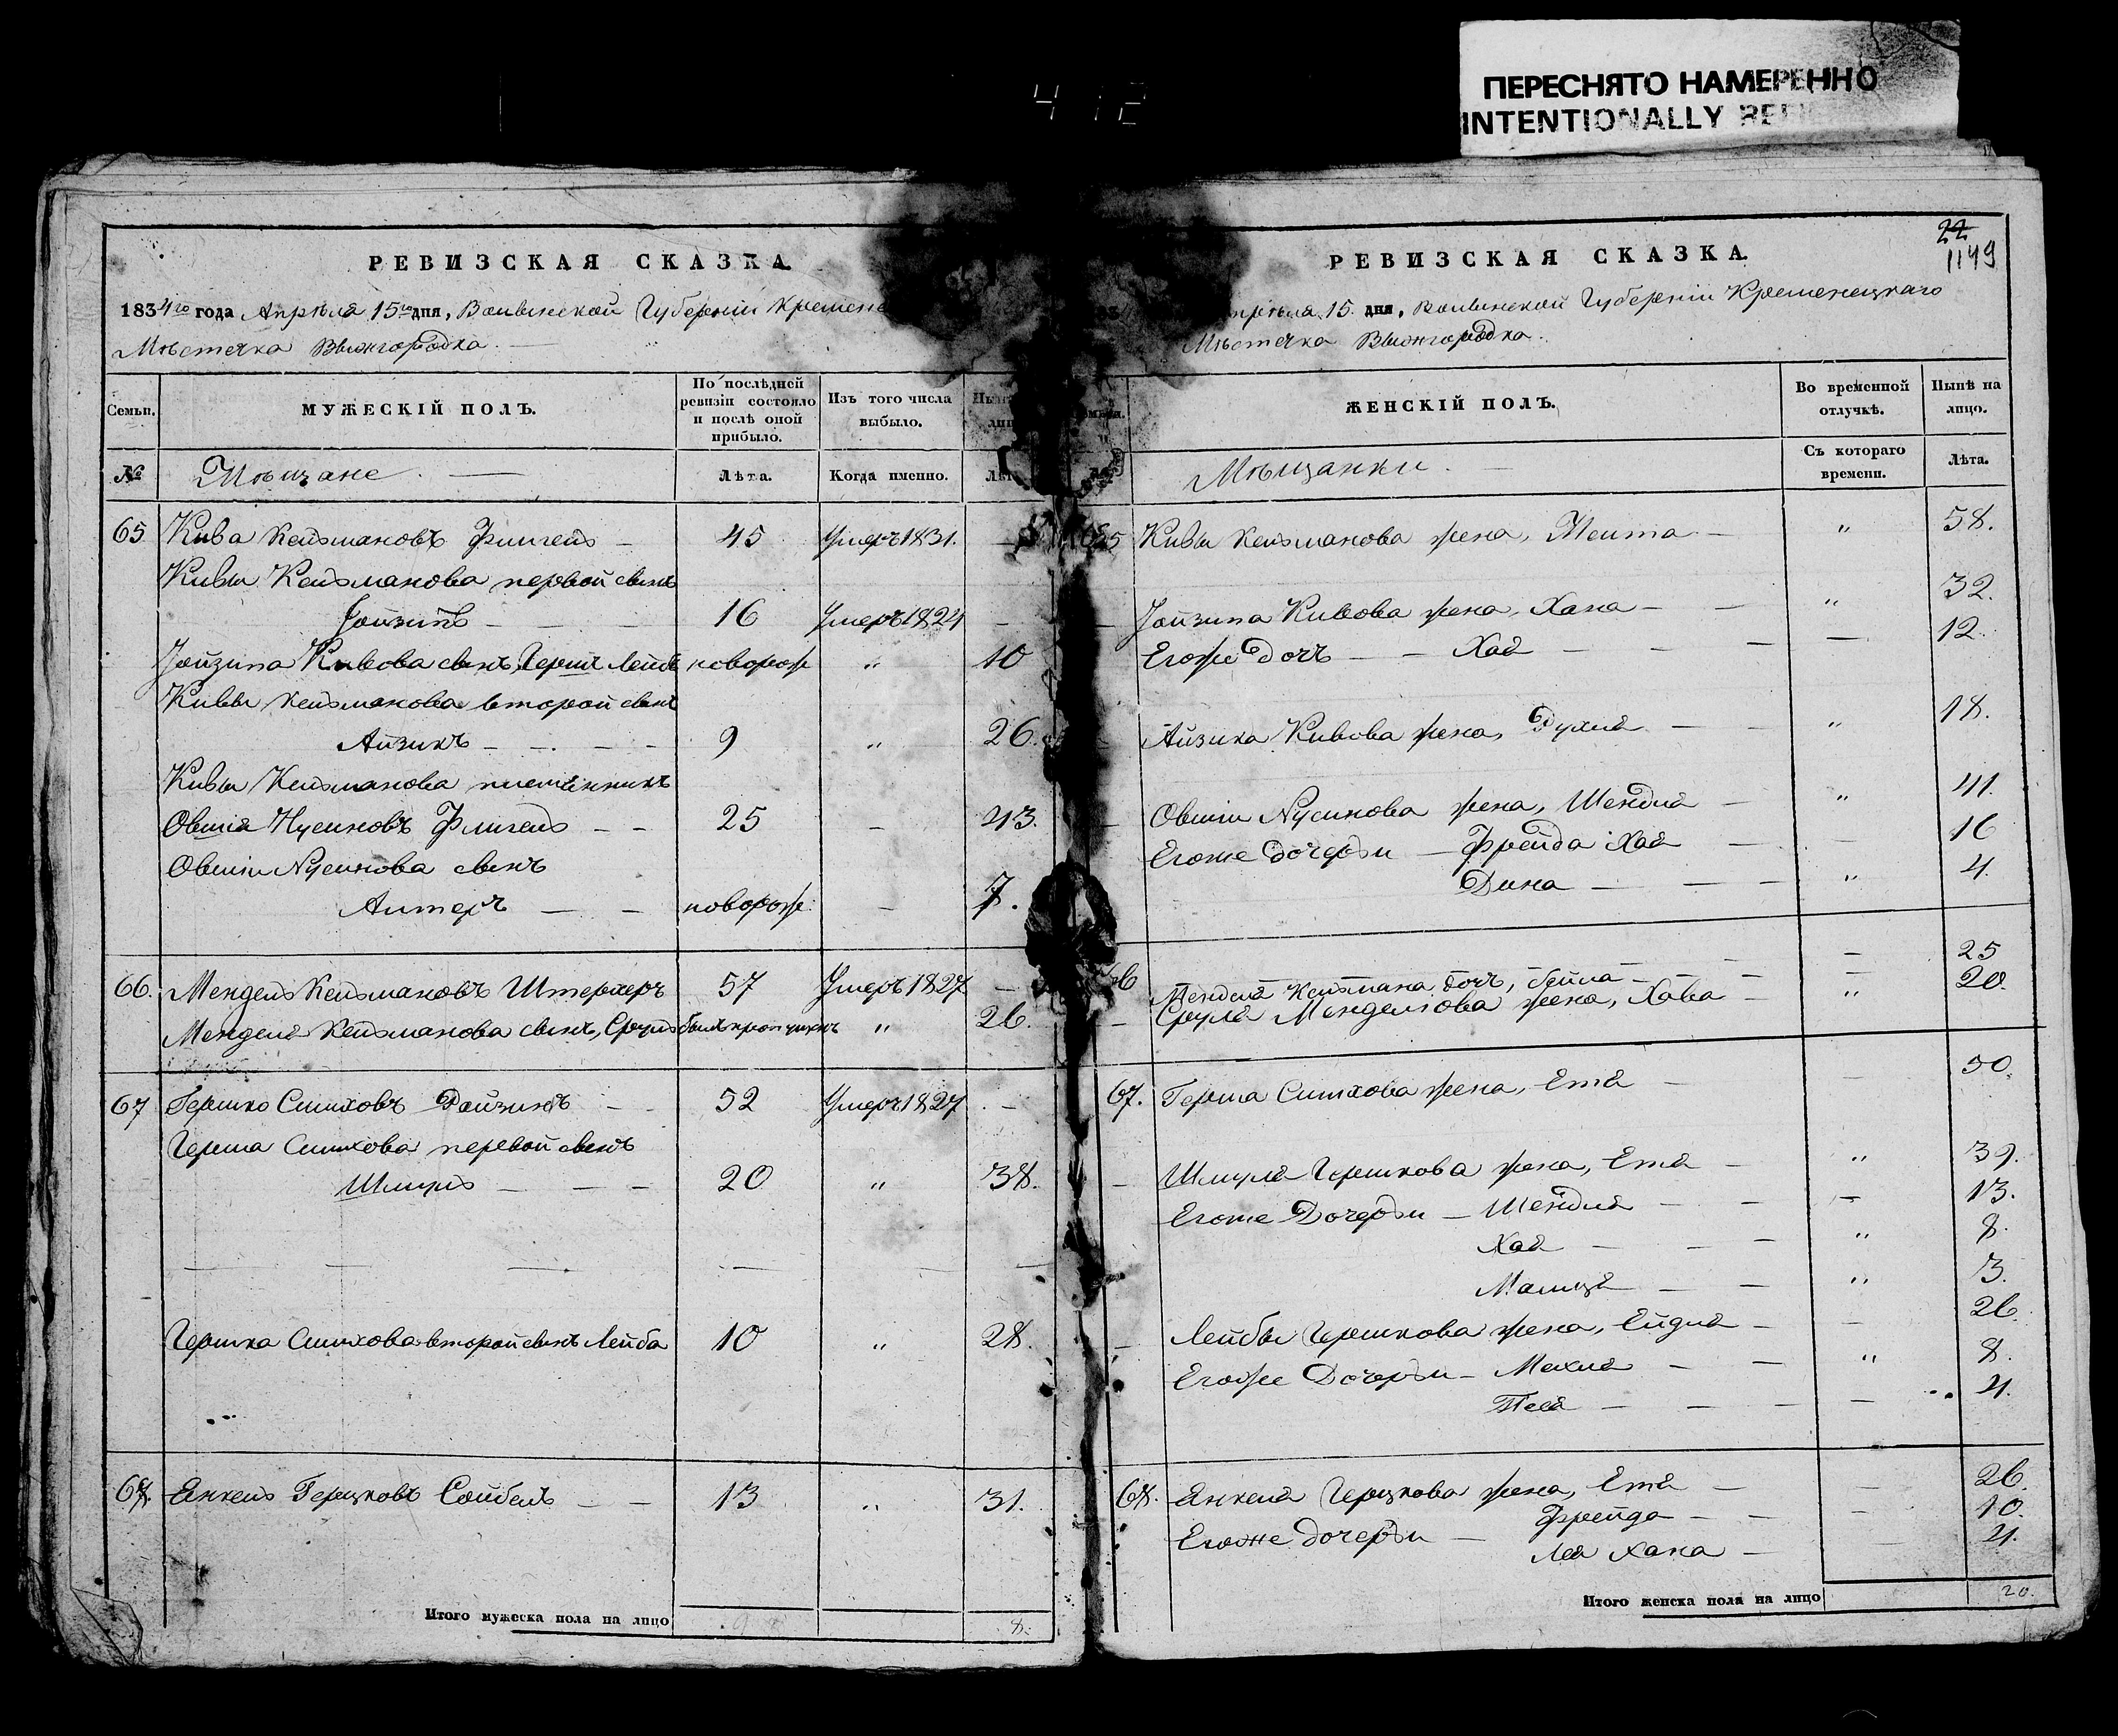 412
ПЕРЕСНЯТО НАМЕРЕННО
INTENTIONALLY
РЕВИЗСКАЯ СКАЗКА.
1834го года Апрѣля 15го дня, Волынской Губерніи
Мѣстечка Вышгородка.
Семьи.
МУЖЕСКІЙ ПОЛЪ.
По послѣдней ревизіи состояло и послѣ оной прибыло.
Изъ того числа выбыло.
№
Мѣщане.
Лѣта.
Когда именно.
65 Кива Кельмановъ Флигель — 45 Умеръ 1831. —
Кивы Кельманова первой сынъ
Іойзипъ — 16 Умеръ 1824 —
Іойзипа Кивова сынъ, Гершъ Лейба новорож " 10
Кивы Кельманова второй сынъ
Айзикъ — 9 " 26.
Кивы Кельманова племянникъ
Овшія Нусиновъ Флигель — 25 — 43.
Овшіи Нусинова сынъ
Алтеръ — новорож: — 7.
66. Мендель Кельмановъ Штерхеръ 57 Умеръ 1827 —
Менделя Кельманова сынъ, Сруль былъ пропущенъ " 26.
67 Гершко Симховъ 52 Умеръ 1827 —
Герша Симхова первой сынъ
Шмуль — 20 " 38.
Гершка Симхова второй сынъ Лейба 10 " 28.
68. Янкель Герцковъ Сойбель — 13 " 31.
Итого мужеска пола на лицо 8.
22
1149
РЕВИЗСКАЯ СКАЗКА.
15. дня, Волынской Губерніи Кременецкаго
Мѣстечка Вышгородка.
ЖЕНСКІЙ ПОЛЪ.
Во временной отлучкѣ.
Нынѣ на лицо.
Мѣщанки.
Съ котораго времени.
Лѣта.
65 Кивы Кельманова жена, Мента — " 58.
Іойзипа Кивова жена, Хана — " 32.
Егоже дочь — Хая — 12.
Айзика Кивова жена, Рухля — " 18.
Овшіи Нусинова жена, Шендля — " 41.
Егоже дочери — Фрейда Хая — 16
Дина — " 4.
66 Менделя Кельмана дочь, Бейла — 25
Сруля Менделіова жена, Хава — " 20.
67. Герша Симхова жена, Етя — 50.
Шмуля Гершкова жена, Етя — " 39.
Егоже Дочери — Шендля — 13.
Хая — " 8.
Малця — " 3.
Лейбы Гершкова жена, Ейдля — 26.
Егоже Дочери — Махля — " 8.
Песя — 4.
68. Янкеля Герцкова жена, Етя — 26.
Егоже дочери — Фрейда — 10.
Лея Хана — 4.
Итого женска пола на лицо 20.